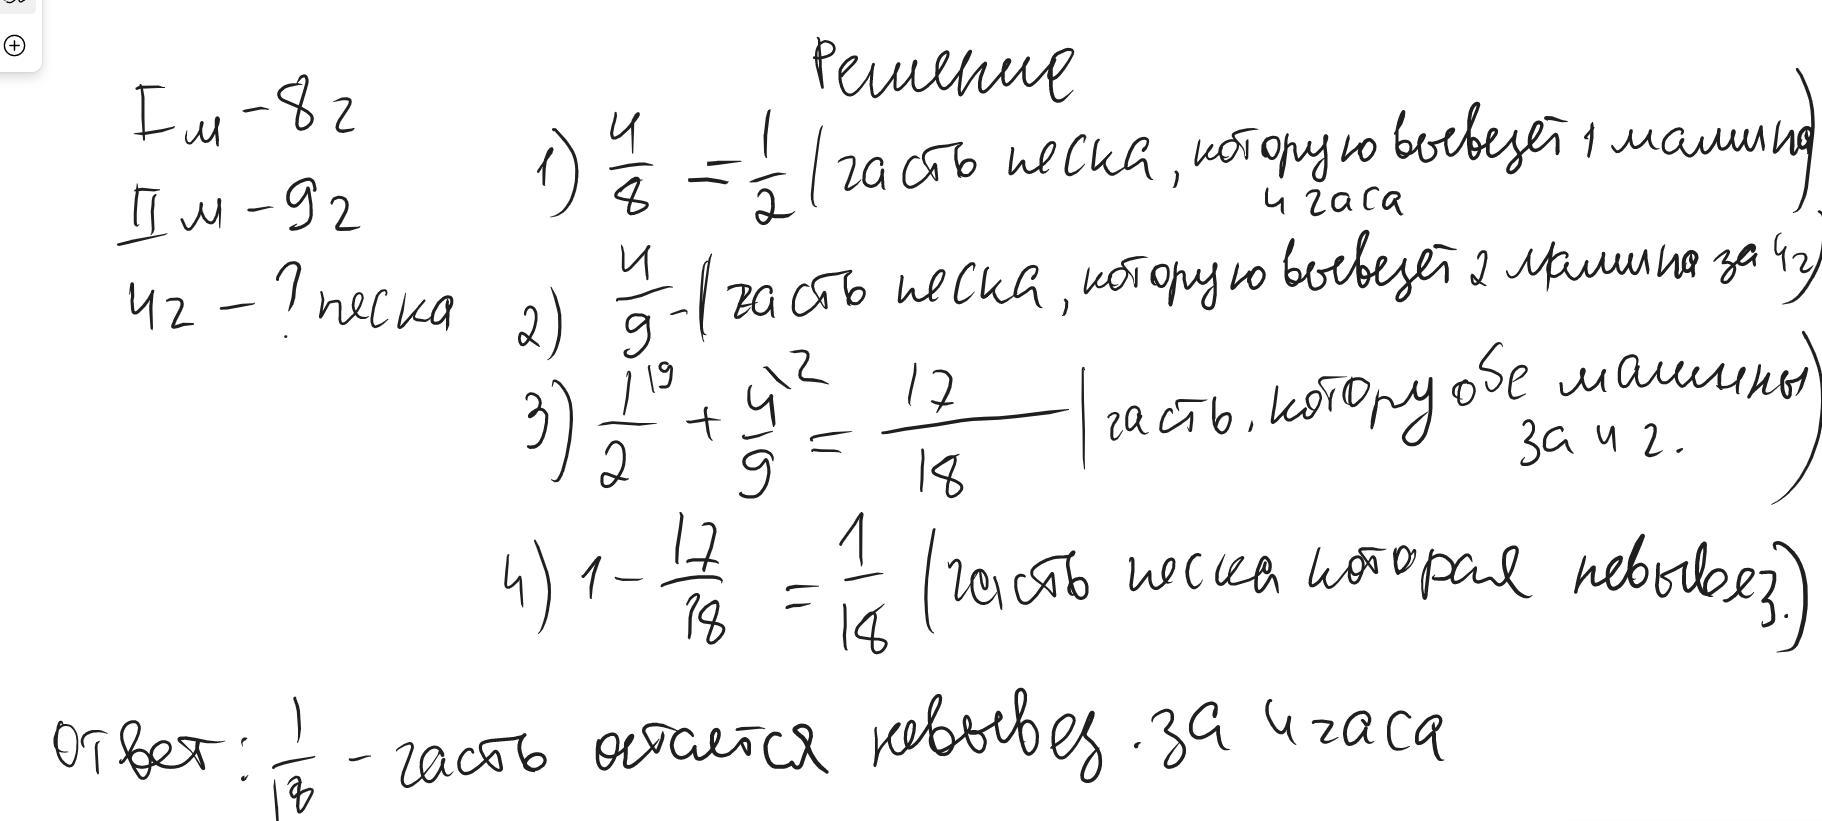 Решение
I м – 8 ч
II м – 9 ч
4 ч – ? песка
1) 4/8 = 1/2 (часть песка, которую вывезет 1 машина
4 часа)
2) 4/9 - (часть песка, которую вывезет 2 машина за 4 ч)
3) 1/2 \9 + 4/9 \2 = 17/18 (часть, котору обе машины
за 4 ч.)
4) 1 – 17/18 = 1/18 (часть песка которая невывез.)
Ответ: 1/18 – часть остается невывез. за 4 часа